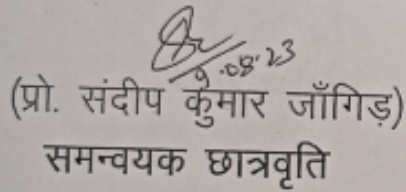 9.08.23
(प्रो. संदीप कुमार जाँगिड़)
समन्वयक छात्रवृति